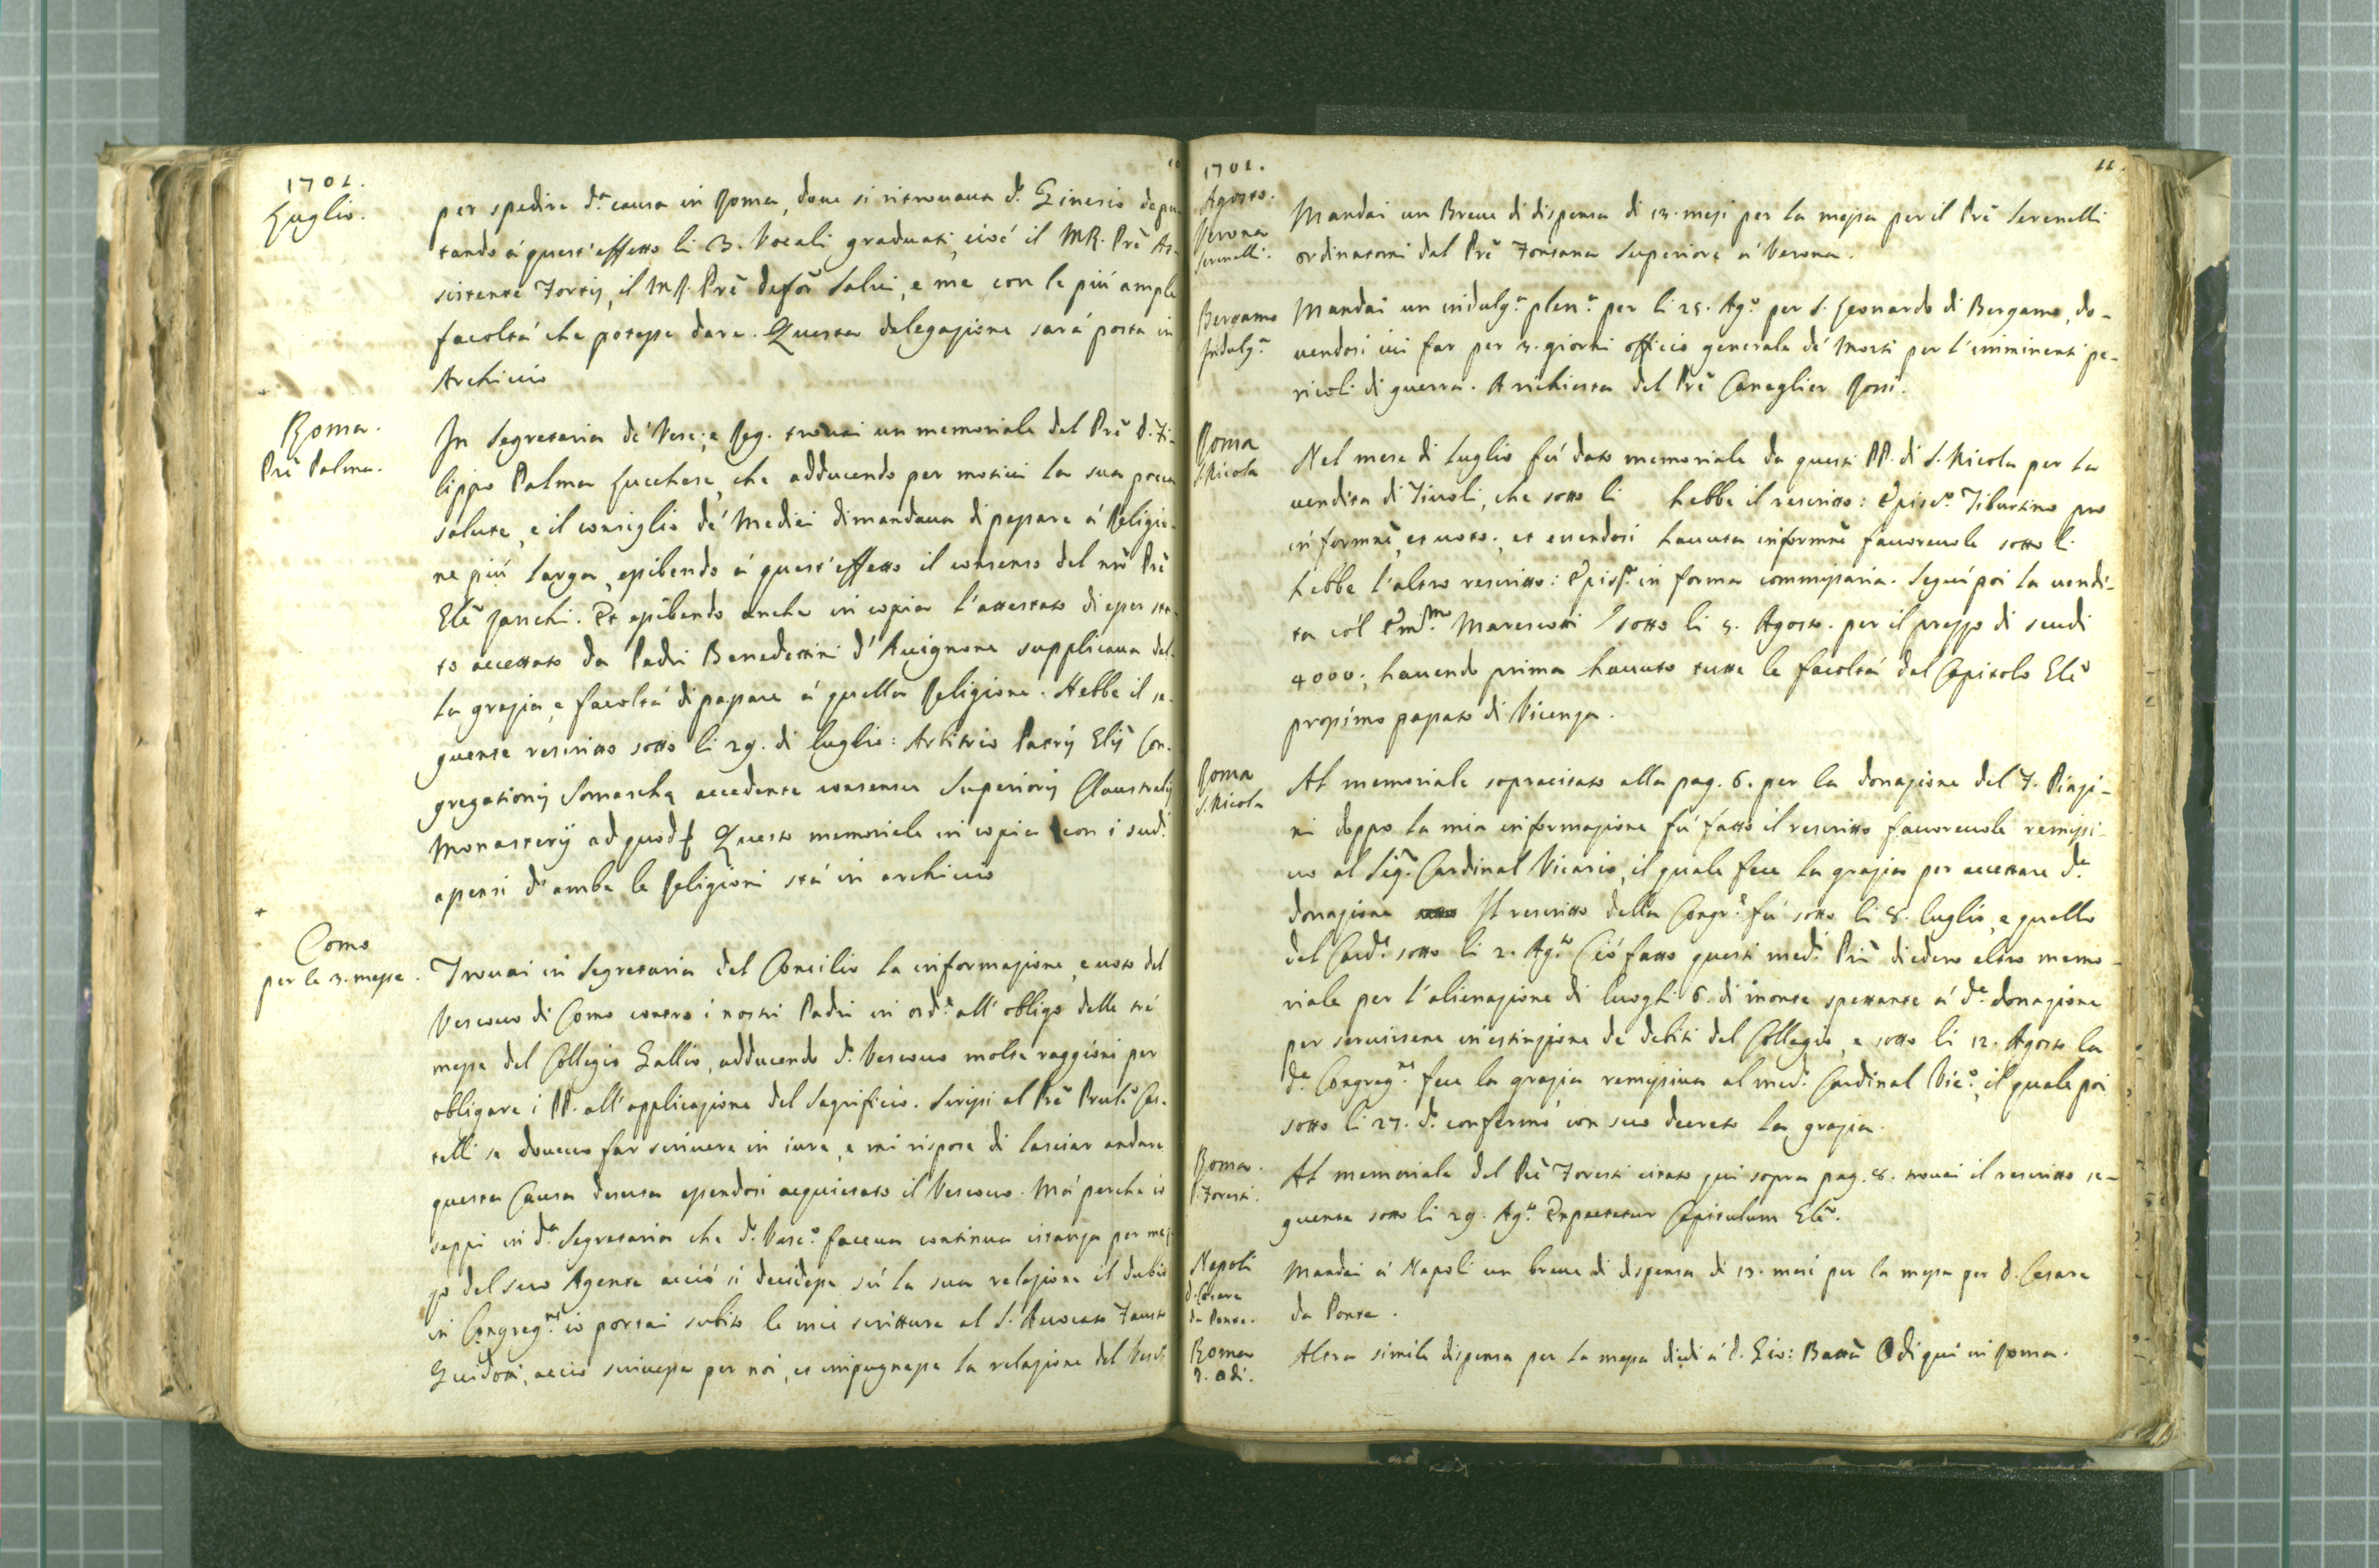 10
1701.
Luglio.
per spedire d.ª causa in Roma, doue si ritrouaua d.º Ginesio depu-
tando á quest'effetto li 3. Vocali graduati, cioé il M.R. Prē As-
sistente Fortis, il M.R. Prē Deforē Salui, e me con le piú ample
facoltá che potesse dare. Questa delegazione sará posta in
Archiuio
Roma.
Prē Palma.
In Segretaria de' Vesc: e Reg. trouai un memoriale del Prē D. Fi-
lippo Palma Lucchese, che adducendo per motiui la sua poca
salute, e il consiglio de' Medici dimandaua di passare á Religio-
ne piú larga, esibendo á quest'effetto il consenso del nrō Prē
Glē Zanchi. Et esibendo anche in copia l'attestato di esser sta-
to accettato da Padri Benedettini d'Auignone supplicaua del-
la grazia, e facoltá di passare á quella Religione. Hebbe il se-
guente rescritto sotto li 29. di luglio: Arbitrio Patris Glis Con-
gregationis Somaschę accedente consensu Superioris Claustralis
Monasterij ad quod Questo memoriale in copia con i sud.ⁱ
assensi d'ambe le Religioni stá in archiuio
Como
per le 3. messe.
Trouai in Segretaria del Concilio la informazione, e uoto del
Vescouo di Como contro i nostri Padri in ord.ᵉ all'obligo delle tré
messe del Collegio Gallio, adducendo d.º Vescouo molte raggioni per
obligare i PP. all'applicazione del Sagrificio. Scrissi al Prē Prulē Cas-
telli se doueuo far scriuere in iure, e mi rispose di lasciar andare
questa Causa deserta essendosi acquietato il Vescouo. Má perche io
seppi in d.ª Segretaria che d.º Vesc.º faceua continua istanza per mez-
zo del suo Agente acció si decidesse sú la sua relazione il dubio
in Congreg.ⁿᵉ io portai subito le mie scritture al S. Auocato Fausto
Guidoni, acció scriuesse per noi, et impugnasse la relazione del Vesc.º
11.
1701.
Agosto.
Verona
Serenelli.
Mandai un Breue di dispensa di 13. mesi per la messa per il Prē Serenelli
ordinatomi dal Prē Fontana Superiore á Verona.
Bergamo
Indulg.ª
Mandai un indulg.ª plen.ª per li 25. Ag.º per S. Leonardo di Bergamo, do-
uendosi iui far per 3. giorni officio generale de' Morti per l'imminenti pe-
ricoli di guerra. A richiesta del Prē Caneglier Rossi.
Roma
S. Nicola
Nel mese di Luglio fú dato memoriale da questi PP. di S. Nicola per la
uendita di Tiuoli, che sotto li hebbe il rescritto: Episc.º Tiburtino pro
informnē, et uoto., et essendosi hauuta informnē fauoreuole sotto li
hebbe l'altro rescritto: Episc.º in forma commissaria. Seguí poi la uendi-
ta cól Em.ᵐᵒ Marescotti sotto li 5. Agosto. per il prezzo di scudi
4000; hauendo prima hauuto tutte le facoltá dal Capitolo Glē
prossimo passato di Vicenza.
Roma
S. Nicola
Al memoriale sopracitato alla pag. 6. per la donazione del F. Piazi-
ni doppo la mia informazione fú fatto il rescritto fauoreuole remissi-
uo al Sig.ʳ Cardinal Vicario, il quale fece la grazia per accettare d.ª
donazione Il rescritto della Congr.ᵉ fú sotto li 8. luglio, e quello
del Card.ˡᵉ sotto li 2. Ag.ᵗᵒ Ció fatto questi med.ⁱ Prī diedero altro memo-
riale per l'alienazione di luoghi 6. di monte spettante á d.ª donazione
per seruirsene in estinzione de debiti del Collegio, e sotto li 12. Agosto la
d.ª Congreg.ⁿᵉ fece la grazia remissiua al med.º Cardinal Vic.º, il quale poi
sotto li 27. d.º confermó con suo decreto la grazia.
Roma.
P. Foresti.
Al memoriale del Prē Foresti citato qui sopra pag. 8. trouai il rescritto se-
guente sotto li 29. Ag.ᵗᵒ Expectetur Capitulum Glē.
Napoli
D. Cesare
da Ponte.
Mandai á Napoli un breue di dispensa di 13. mesi per la messa per D. Cesare
da Ponte.
Roma
D. Odi.
Altra simile dispensa per la messa diedi á D. Gio: Battā Odi qui in Roma.